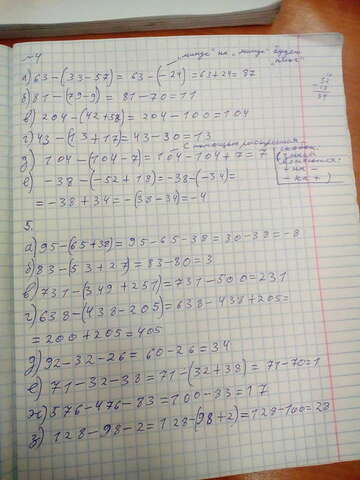 №4
„минус" на „минус" будет
„плюс"
а) 63-(33-57)= 63-(-24)=63+24=87
б) 81-(79-9)= 81-70=11
в) 204-(42+58)= 204-100=104
г) 43-(13+17)=43-30=13
С помощью раскрытия
д) 104-(104-7)=104-104+7=7
скобок:
(знаки
меняются:
+ на -
- на +)
е) -38-(-52+18)=-38-(-34)=
=-38+34=-(38-34)=-4
5.
а) 95-(65+38)=95-65-38=30-38=-8
б) 83-(53+27)=83-80=3
в) 731-(349+251)=731-500=231
г) 638-(438-205)=638-438+205=
=200+205=405
д) 92-32-26=60-26=34
е) 71-32-38=71-(32+38)=71-70=1
ж) 576-476-83=100-83=17
з) 128-98-2=128-(98+2)=128-100=28